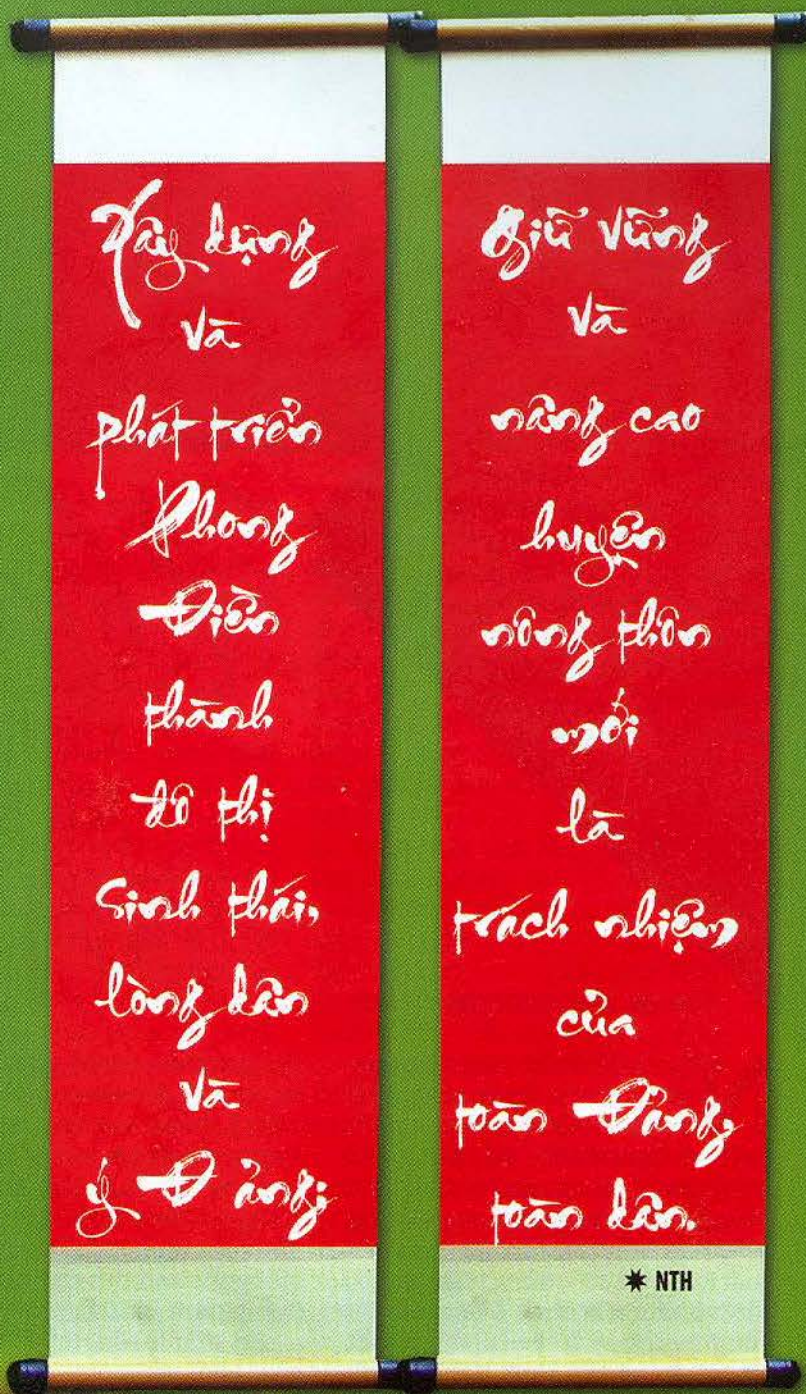 Xây dựng
và
phát triển
Phong
Điền
thành
đô thị
sinh thái,
lòng dân
và
ý Đảng;
Giữ vững
và
nâng cao
huyện
nông thôn
mới
là
trách nhiệm
của
toàn Đảng,
toàn dân.
NTH